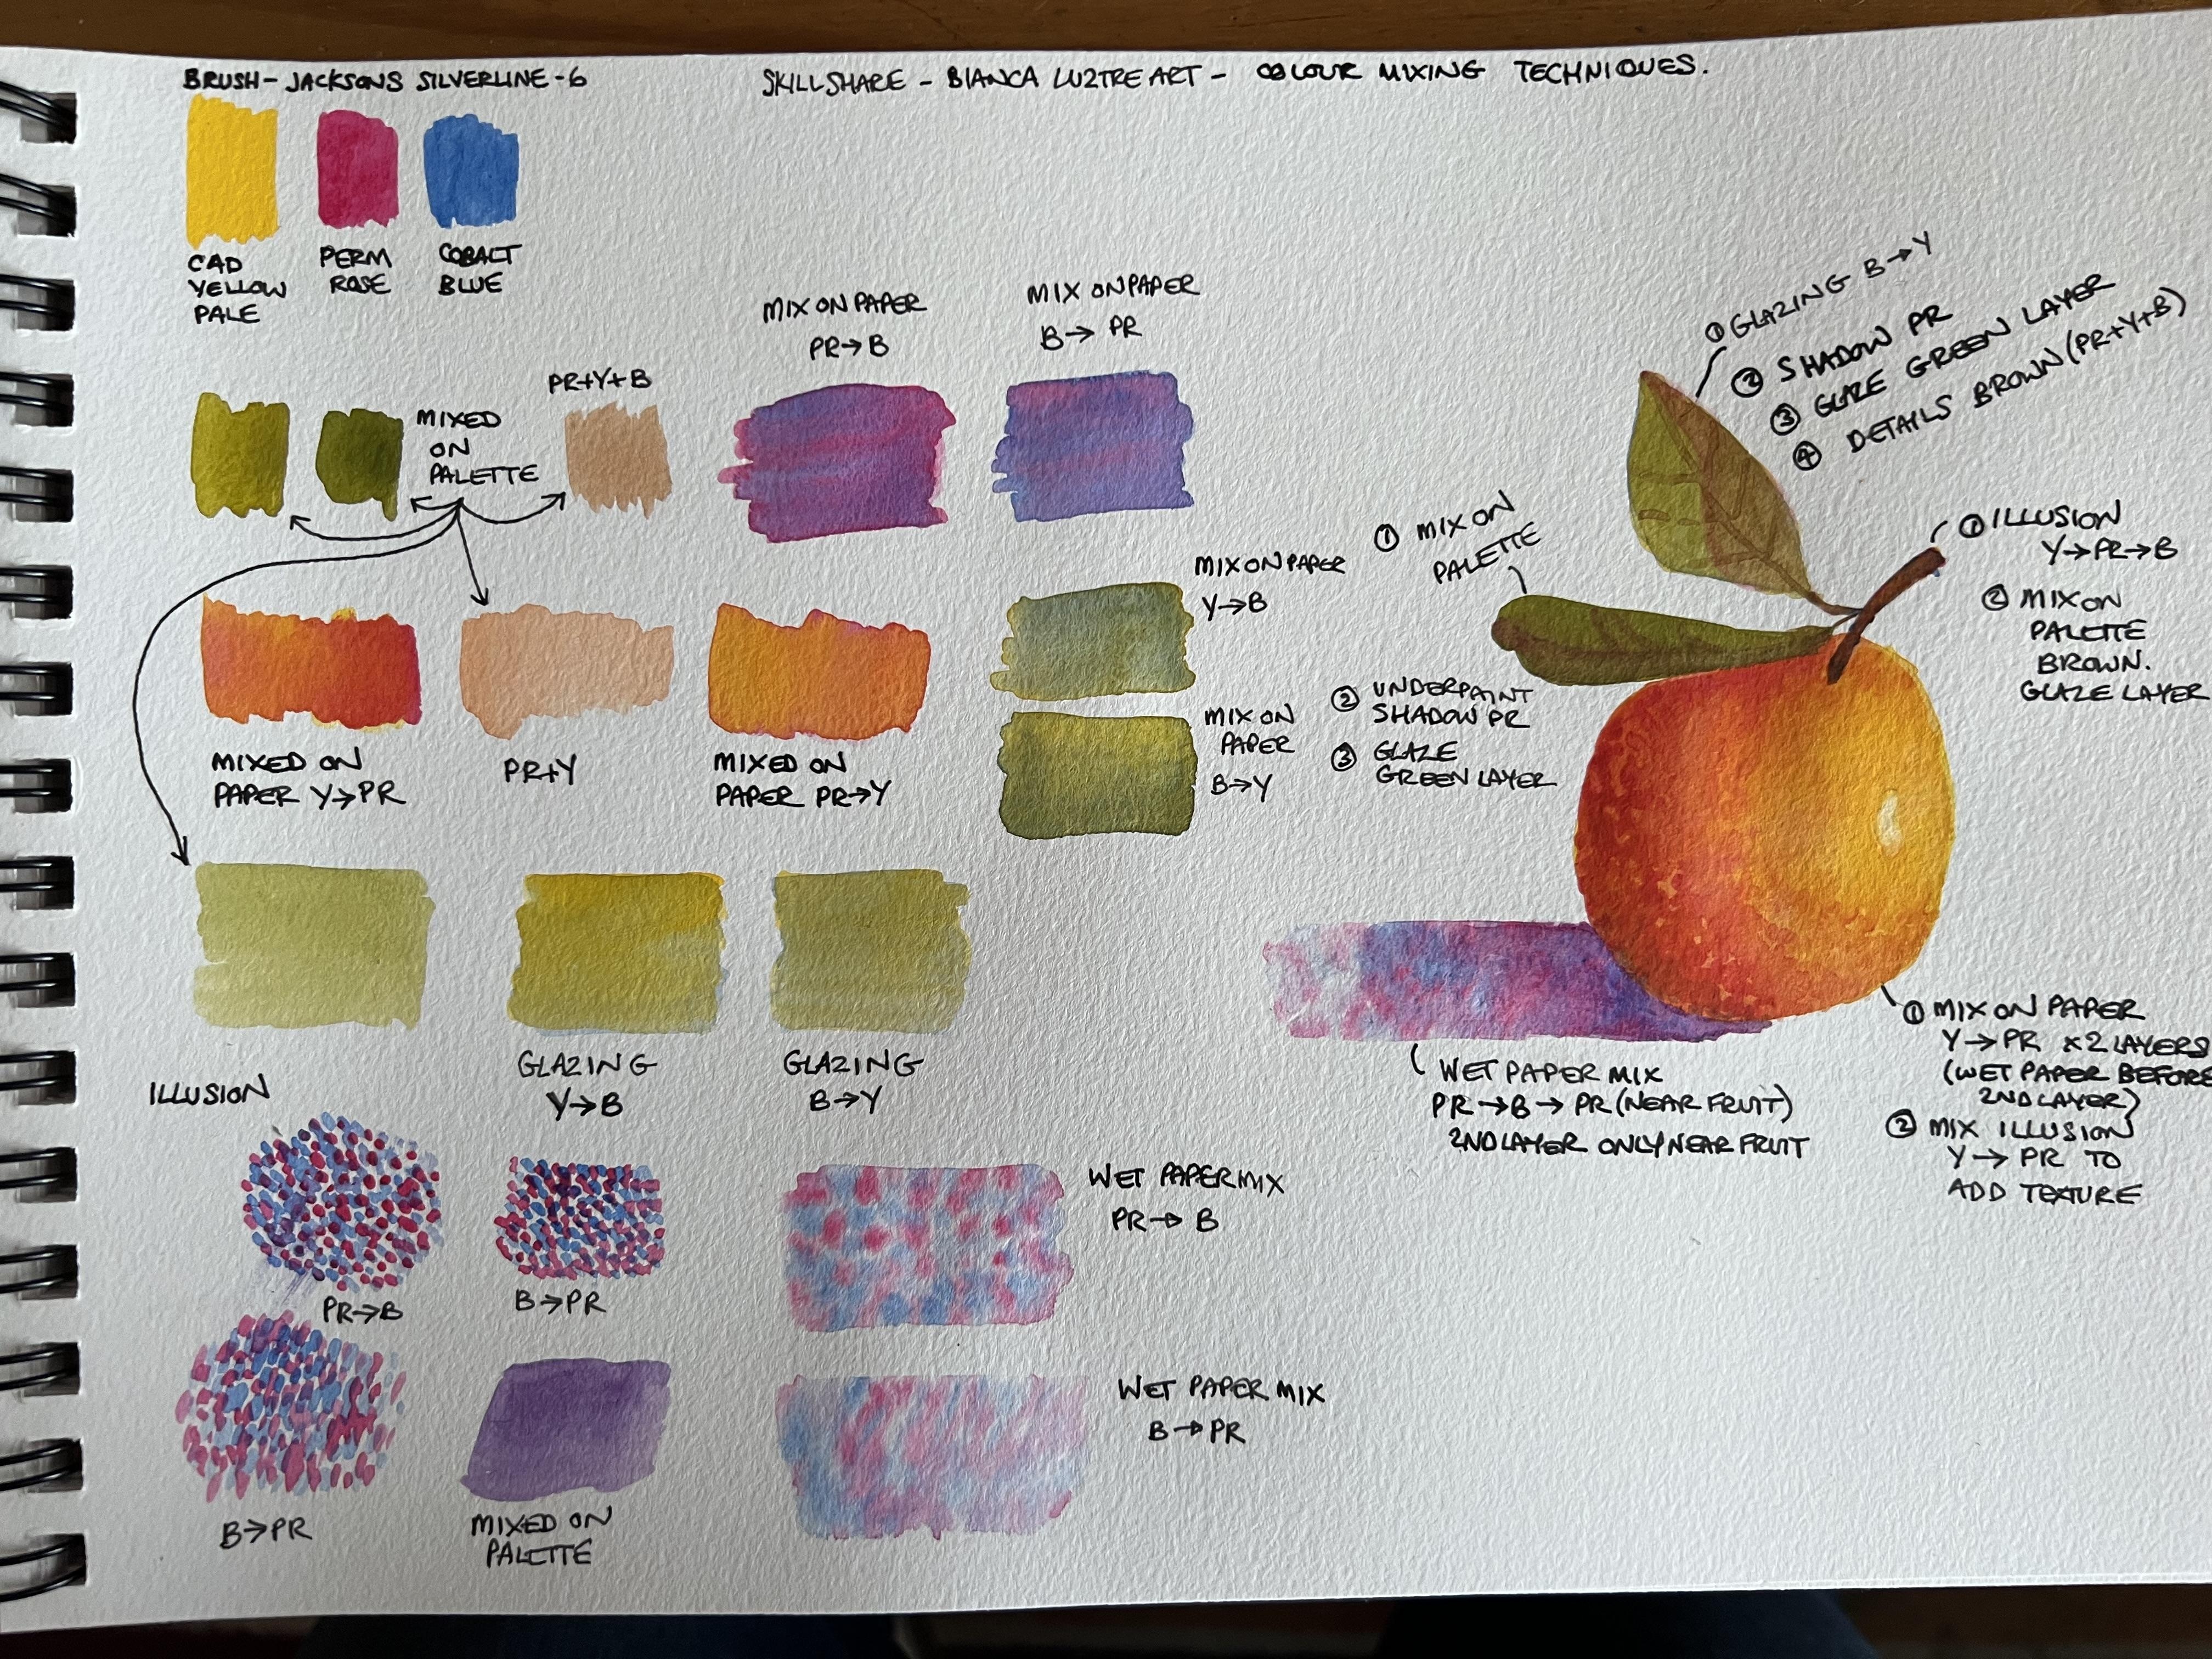 BRUSH - JACKSONS SILVERLINE - 6
SKILLSHARE - BIANCA LUZTRE ART - COLOUR MIXING TECHNIQUES.
CAD
YELLOW
PALE
PERM
ROSE
COBALT
BLUE
MIXED
ON
PALETTE
PR+Y+B
MIX ON PAPER
PR→B
MIX ON PAPER
B→ PR
MIXED ON
PAPER Y→PR
PR+Y
MIXED ON
PAPER PR→Y
MIX ON PAPER
Y→B
MIX ON
PAPER
B→Y
GLAZING
Y→B
GLAZING
B→Y
ILLUSION
PR→B
B→PR
B→PR
MIXED ON
PALETTE
WET PAPER MIX
PR→ B
WET PAPER MIX
B→PR
① GLAZING B→Y
② SHADOW PR
③ GLAZE GREEN LAYER
④ DETAILS BROWN (PR+Y+B)
① MIX ON
PALETTE
② UNDERPAINT
SHADOW PR
③ GLAZE
GREEN LAYER
① ILLUSION
Y→PR→B
② MIX ON
PALETTE
BROWN.
GLAZE LAYER
① MIX ON PAPER
Y→PR x2 LAYERS
(WET PAPER BEFORE
2ND LAYER)
② MIX ILLUSION
Y→ PR TO
ADD TEXTURE
WET PAPER MIX
PR→B→ PR (NEAR FRUIT)
2ND LAYER ONLY NEAR FRUIT